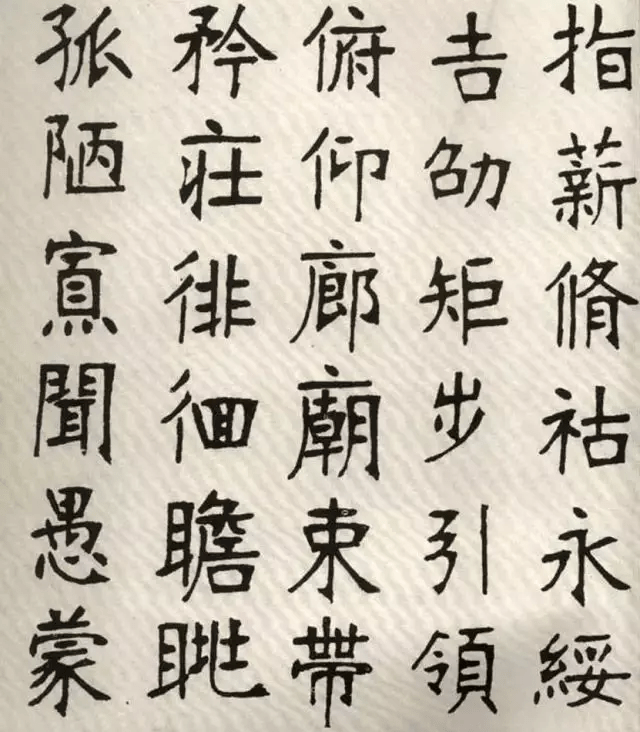 指薪脩祜永綏
吉劭矩步引領
俯仰廊廟束帶
矜莊徘徊瞻眺
孤陋寡聞愚蒙